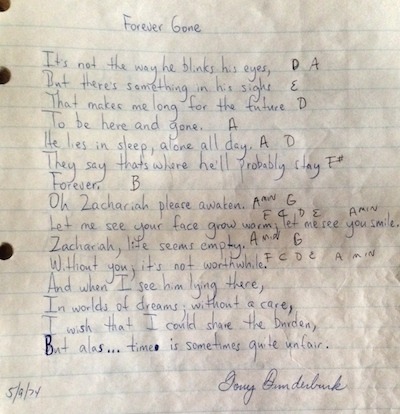 Forever Gone
It's not the way he blinks his eyes, D A
But there's something in his sighs E
That makes me long for the future D
To be here and gone. A
He lies in sleep, alone all day. A D
They say thats where he'll probably stay F#
Forever. B
Oh Zachariah please awaken. Amin G
F C D E Amin
Let me see your face grow warm, let me see you smile.
Zachariah, life seems empty. Amin G
F C D E A min
Without you, it's not worthwhile.
And when I see him lying there,
In worlds of dreams, without a care,
I wish that I could share the burden,
But alas... time is sometimes quite unfair.
5/9/74 Tony Funderburk